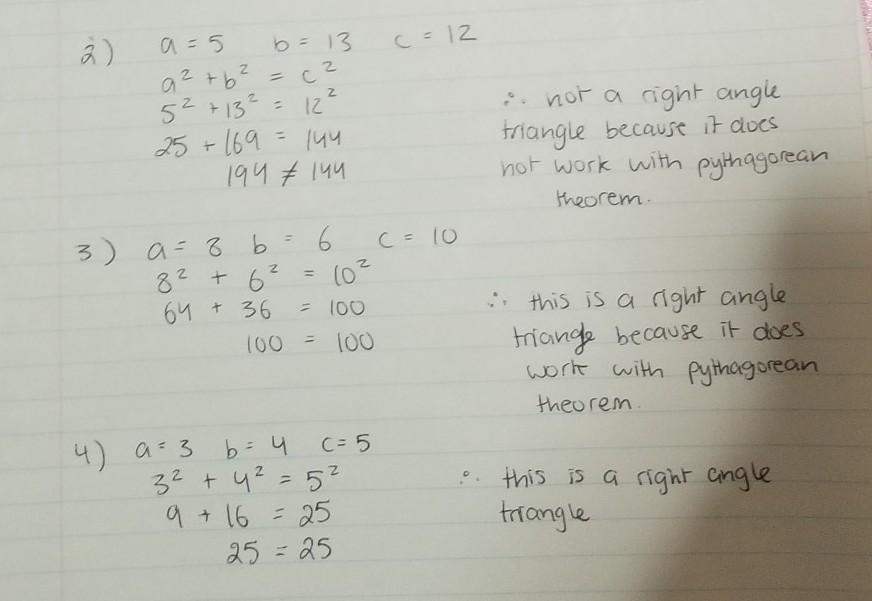 2) a = 5 b = 13 c = 12
a² + b² = c²
5² + 13² = 12²
25 + 169 = 144
194 ≠ 144
∴ not a right angle
triangle because it does
not work with pythagorean
theorem.
3) a = 8 b = 6 c = 10
8² + 6² = 10²
64 + 36 = 100
100 = 100
∴ this is a right angle
triangle because it does
work with pythagorean
theorem.
4) a = 3 b = 4 c = 5
3² + 4² = 5²
9 + 16 = 25
25 = 25
∴ this is a right angle
triangle